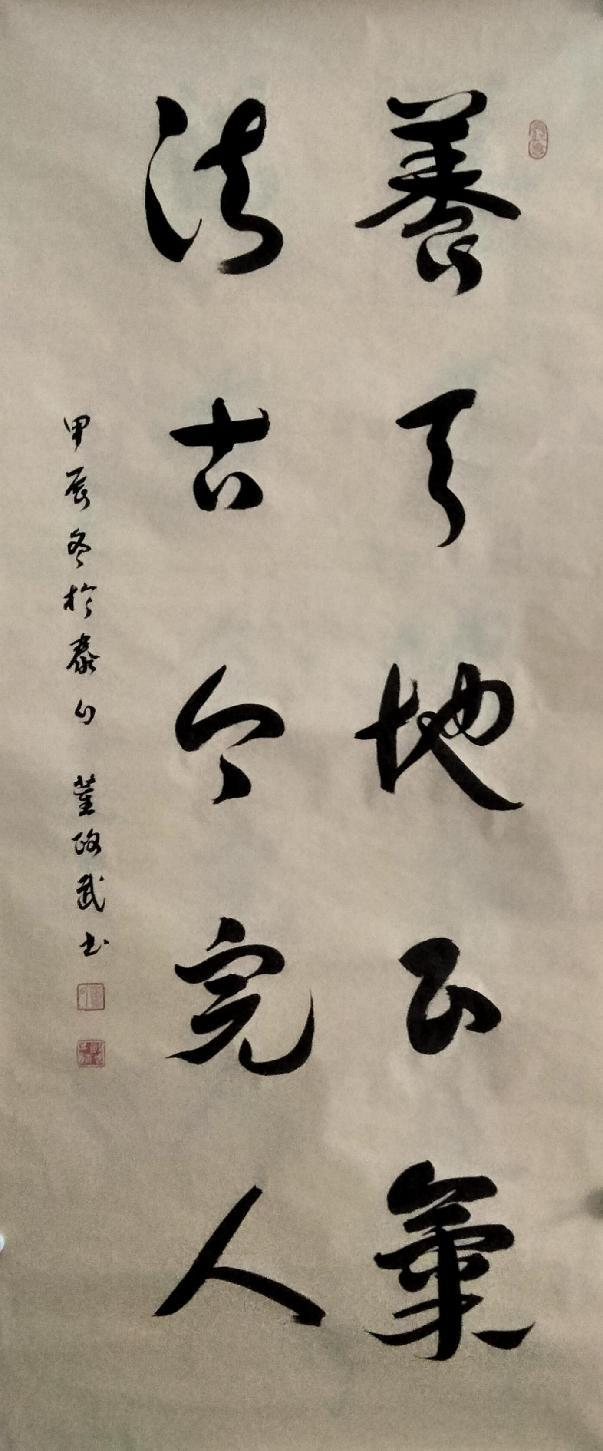 養天地正氣
法古今完人
甲辰冬於泰山 董路武书